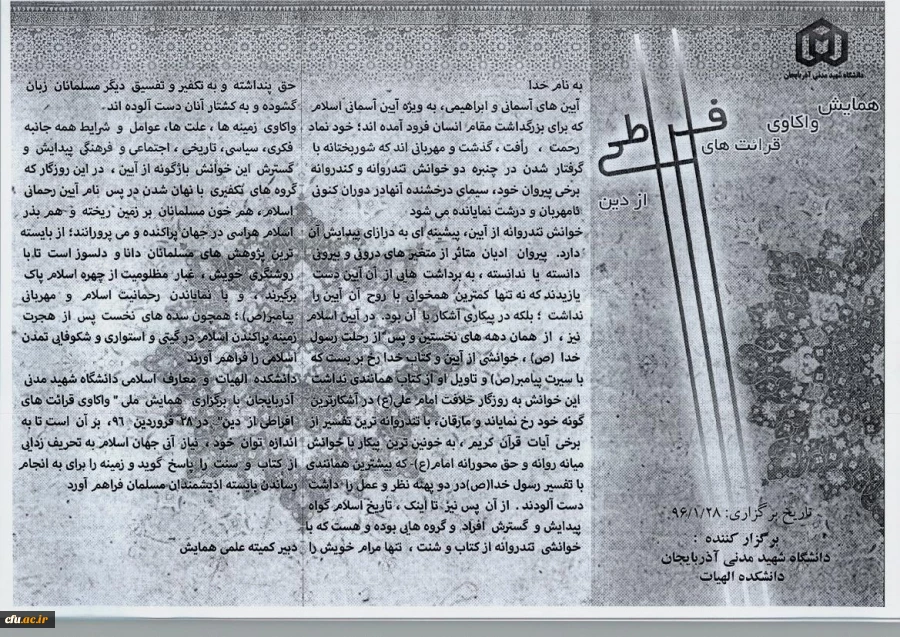 دانشگاه شهید مدنی آذربایجان
همایش
واکاوی
قرائت های
افراطی
از دین
تاریخ برگزاری: ۹۶/۱/۲۸
برگزار کننده :
دانشگاه شهید مدنی آذربایجان
دانشکده الهیات
به نام خدا
آیین های آسمانی و ابراهیمی، به ویژه آیین آسمانی اسلام
که برای بزرگداشت مقام انسان فرود آمده اند؛ خود نماد
رحمت ، رأفت ، گذشت و مهربانی اند که شوربختانه با
گرفتار شدن در چنبره دو خوانش تندروانه و کندروانه
برخی پیروان خود، سیمای درخشنده آنهادر دوران کنونی
نامهربان و درشت نمایانده می شود
خوانش تندروانه از آیین، پیشینه ای به درازای پیدایش آن
دارد. پیروان ادیان متاثر از متغیر های درونی و بیرونی
دانسته یا ندانسته ، به برداشت هایی از آن آیین دست
یازیدند که نه تنها کمترین همخوان با روح آن آیین را
نداشت ؛ بلکه در پیکاری آشکار با آن بود. در آیین اسلام
نیز ، از همان دهه های نخستین و پس از رحلت رسول
خدا (ص) ، خوانشی از آیین و کتاب خدا رخ بر بست که
با سیرت پیامبر(ص) و تاویل او از کتاب همانندی نداشت
این خوانش به روزگار خلافت امام علی(ع) در آشکارترین
گونه خود رخ نمایاند و مارقان، با تندروانه ترین تفسیر از
برخی آیات قرآن کریم ، به خونین ترین پیکار با خوانش
میانه روانه و حق محورانه امام(ع)- که بیشترین همانندی
با تفسیر رسول خدا(ص)در دو پهنه نظر و عمل را داشت
دست آلودند . از آن پس نیز تا اینک ، تاریخ اسلام گواه
پیدایش و گسترش افراد و گروه هایی بوده و هست که با
خوانشی تندروانه از کتاب و شنت ، تنها مرام خویش را
حق پنداشته و به تکفیر و تفسیق دیگر مسلمانان زبان
گشوده و به کشتار آنان دست آلوده اند.
واکاوی زمینه ها ، علت ها، عوامل و شرایط همه جانبه
فکری، سیاسی، تاریخی ، اجتماعی و فرهنگی پیدایش و
گسترش این خوانش باژگونه از آیین ، در این روزگار که
گروه های تکفیری با نهان شدن در پس نام آیین رحمانی
اسلام، هم خون مسلمانان بر زمین ریخته و هم بذر
اسلام هراسی در جهان پراکنده و می پرورانند؛ از بایسته
ترین پژوهش های مسلمانان دانا و دلسوز است تا با
روشنگری خویش ، غبار مظلومیت از چهره اسلام پاک
برگیرند ، و با نمایاندن رحمانیت اسلام و مهربانی
پیامبر(ص) ؛ همچون سده های نخست پس از هجرت
زمینه پراکندن اسلام در گیتی و استواری و شکوفایی تمدن
اسلامی را فراهم آورند
دانشکده الهیات و معارف اسلامی دانشگاه شهید مدنی
آذربایجان با برگزاری همایش ملی " واکاوی قرائت های
افراطی از دین" در ۲۸ فروردین ۹۶، بر آن است تا به
اندازه توان خود ، نیاز آنی جهان اسلام به تحریف زدایی
از کتاب و سنت را پاسخ گوید و زمینه را برای به انجام
رساندن بایسته اندیشمندان مسلمان فراهم آورد
دبیر کمیته علمی همایش
cfu.ac.ir